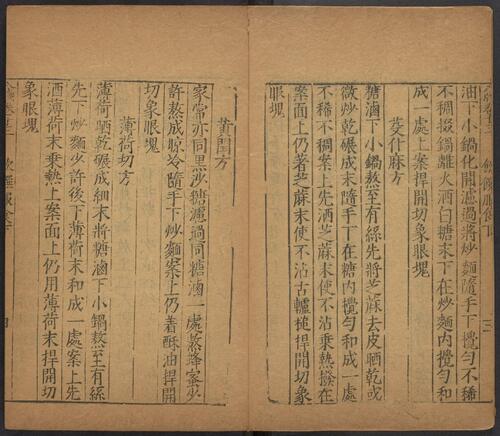 油下小鍋化開濾過將炒麵隨手下攪勻不稀
不稠掇鍋離火洒白糖末下在炒麵內攪勻和
成一處上案捍開切象眼塊
芟什麻方
糖滷下小鍋熬至有絲先將芝蔴去皮晒乾或
微炒乾碾成末隨手下在糖內攪勻和成一處
不稀不稠案上先洒芝蔴末使不沾乘熱撥在
案面上仍着芝蔴末使不沾古轤搥捍開切象
眼塊
黃閏方
家常亦同黑沙糖濾過同糖滷一處熬蜂蜜少
許熬成晾冷隨手下炒麵案上仍着酥油捍開
切象眼塊
薄荷切方
薄荷晒乾碾成細末將糖滷下小鍋熬至有絲
先下炒麵少許後下薄荷末和成一處案上先
洒薄荷末乘熱上案面上仍用薄荷末捍開切
象眼塊